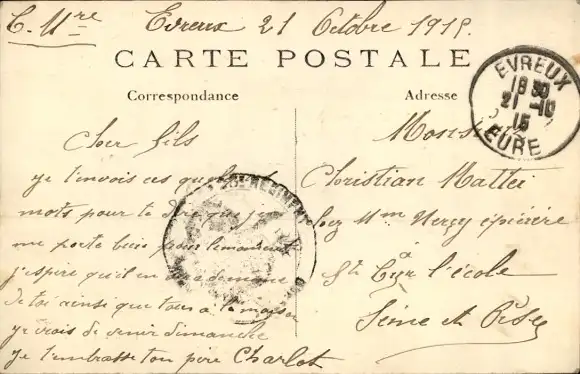 C. Mre Evreux 21 Octobre 1915.
CARTE POSTALE
Correspondance
Adresse
EVREUX
18 30
21 -10
15
EURE
Cher fils
je t'envois ces quelques
mots pour te dire que je
me porte bien pour le moment
j'espère qu'il en
de toi ainsi que tous à la maison
je crois de venir dimanche
je t'embrasse ton père Charlot
REGIMENT
Monsieur
Christian Mattei
chez Mm épicière
à
St Cyr l'école
Seine et Oise